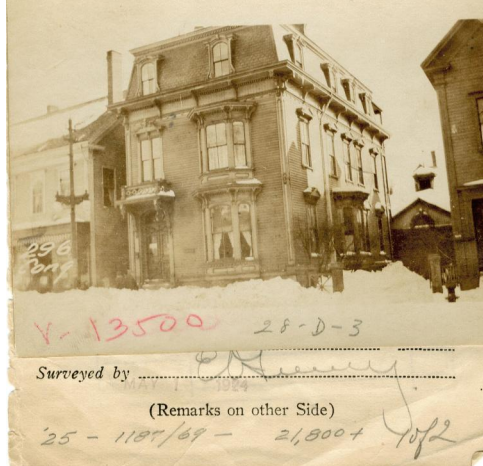 296
Cong
V- 13500 28-D-3
Surveyed by
MAY 1 1924
(Remarks on other Side)
'25 - 1187/69 - 21,800+ 1 of 2